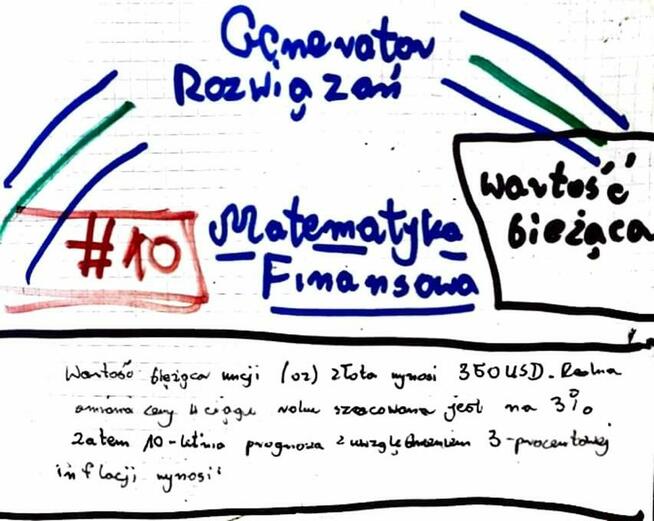 Generator
Rozwiązań
Wartość
bieżąca
#10
Matematyka
Finansowa
Wartość bieżąca uncji (oz) złota wynosi 350USD. Realna
zmiana ceny w ciągu roku szacowana jest na 3%
Zatem 10-letnia prognoza z uwzględnieniem 3-procentowej
inflacji wynosi: